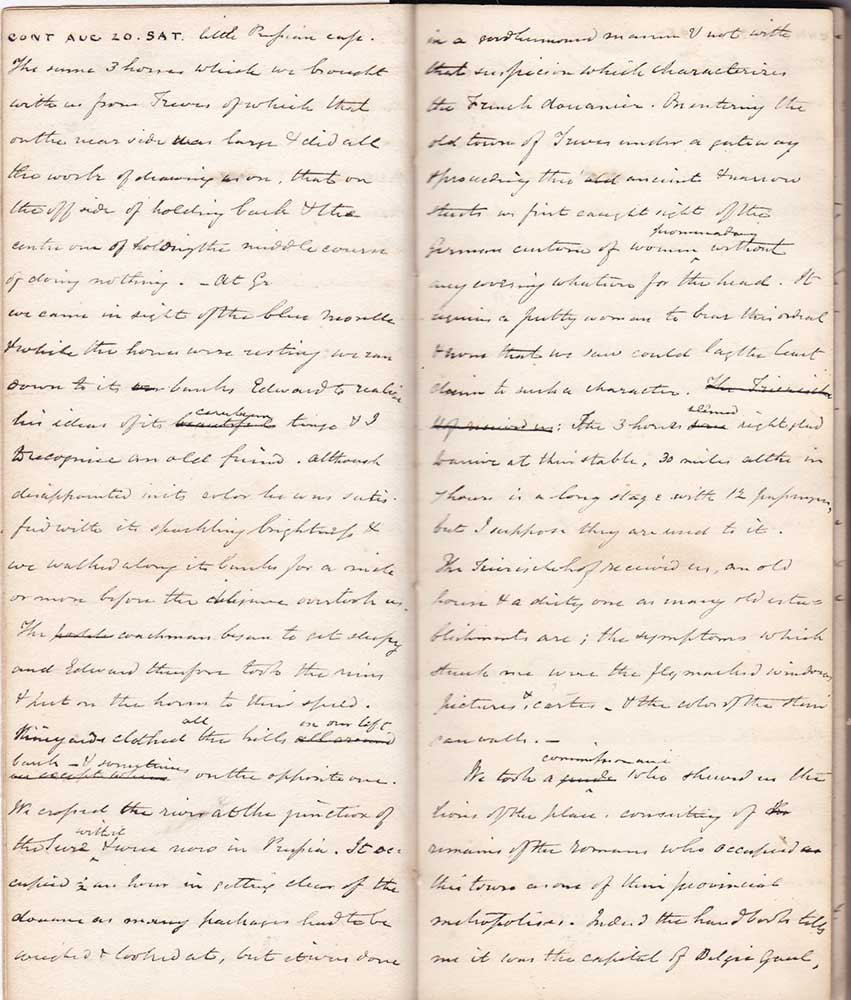 CONT AUG 20. SAT. little Prussian cafe.
The same 3 horses which we brought
with us from Treves of which that
on the near side was large & did all
the work of drawing us on, that on
the off side of holding back & the
centre one of holding the middle course
of doing nothing. - At Gr
we came in sight of the blue Moselle
& while the horses were resting we ran
down to its banks Edward to realize
his ideas of its beautiful cerulean tinge & I
to recognise an old friend. Although
disappointed in its color he was satis-
fied with its sparkling brightness &
we walked along its banks for a mile
or more before the diligence overtook us.
The coachman began to get sleepy
and Edward therefore took the reins
& put on the horses to their speed.
Vineyards clothed all the hills all around on our left
bank - & sometimes on the opposite one.
We crossed the river at the junction of
the Sure with it & were now in Prussia. It oc-
cupied ½ an hour in getting clear of the
douane as many packages had to be
weighed & looked at, but it was done
in a good humoured manner & not with
that suspicion which characterizes
the French douanier. On entering the
old town of Treves under a gateway
& proceeding thro' old ancient & narrow
streets we first caught sight of the
German custom of women promenading without
any covering whatever for the head. It
requires a pretty woman to bear this ordeal
& none that we saw could lay the least
claim to such a character. The Trierische
Hof received us: The 3 horses seemed right glad
to arrive at their stable, 30 miles all the in
7 hours is a long stage with 12 passengers,
but I suppose they are used to it.
The Trierischehof received us, an old
house & a dirty one as many old esta-
blishments are; the symptoms which
struck me were the fly marked windows
pictures & cartes - & the color of the stair
case walls. -
We took a guide commissionaire who shewed us the
lions of the place. consisting of the
remains of the Romans who occupied
this town as one of their provincial
metropolises. Indeed the handbook tells
me it was the capital of Belgic Gaul,